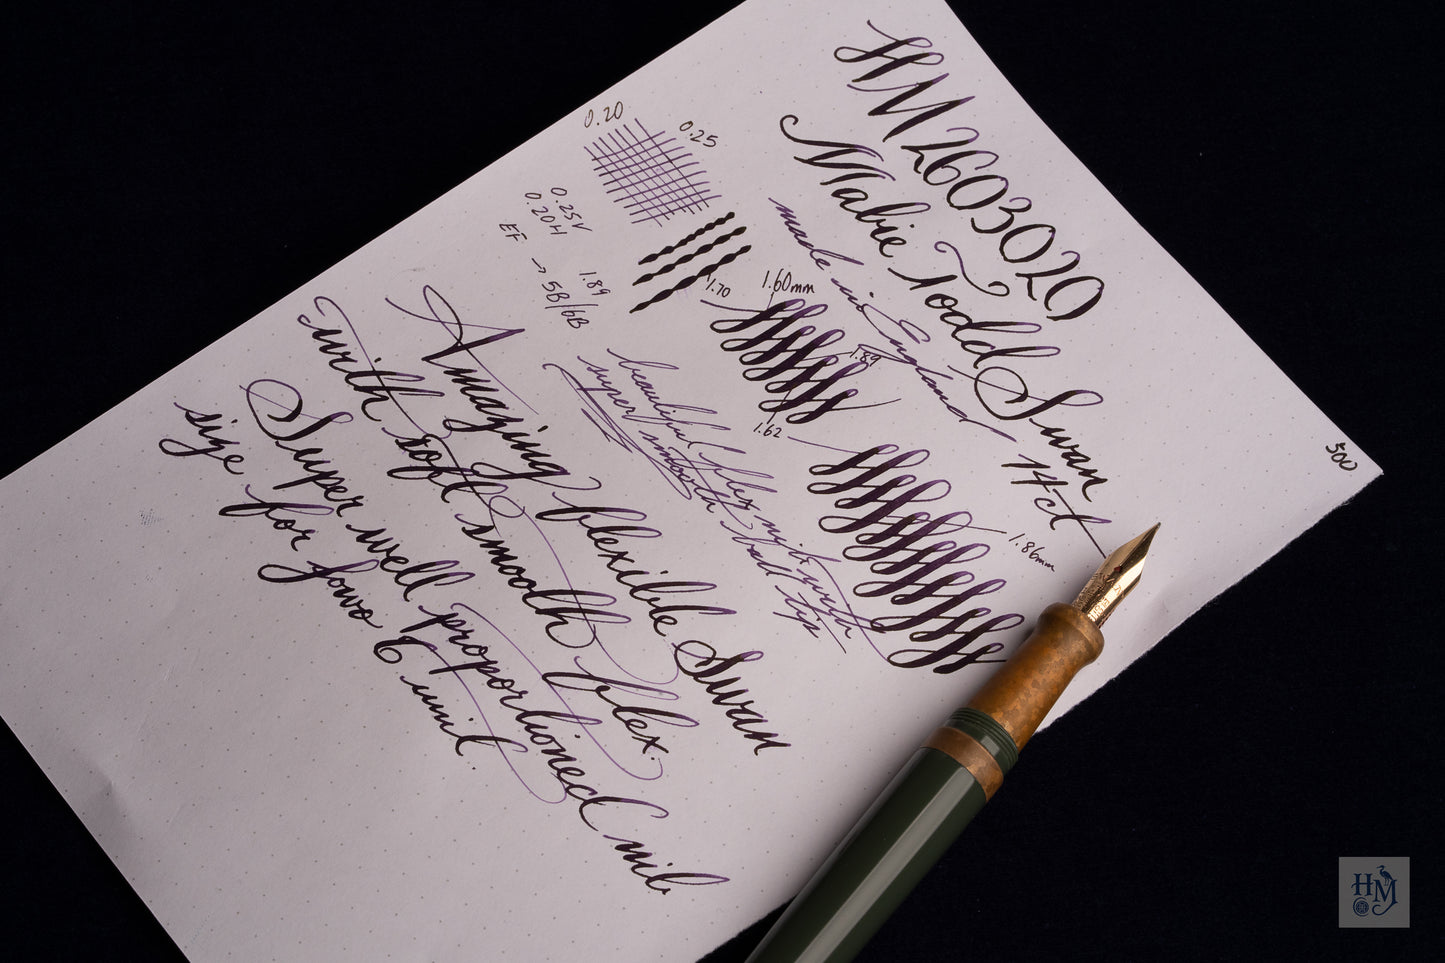 HM2603020
Mabie Todd Swan
made in England 14ct
0.20
0.25
0.25V
0.20H
EF
1.89
→ 5B/6B
1.70
1.60mm
1.89
1.62
1.86mm
beautiful flex nib with
super smooth ball tip
Amazing flexible Swan
with soft smooth flex.
Super well proportioned nib
size for Jowo 6 unit.
500
HM